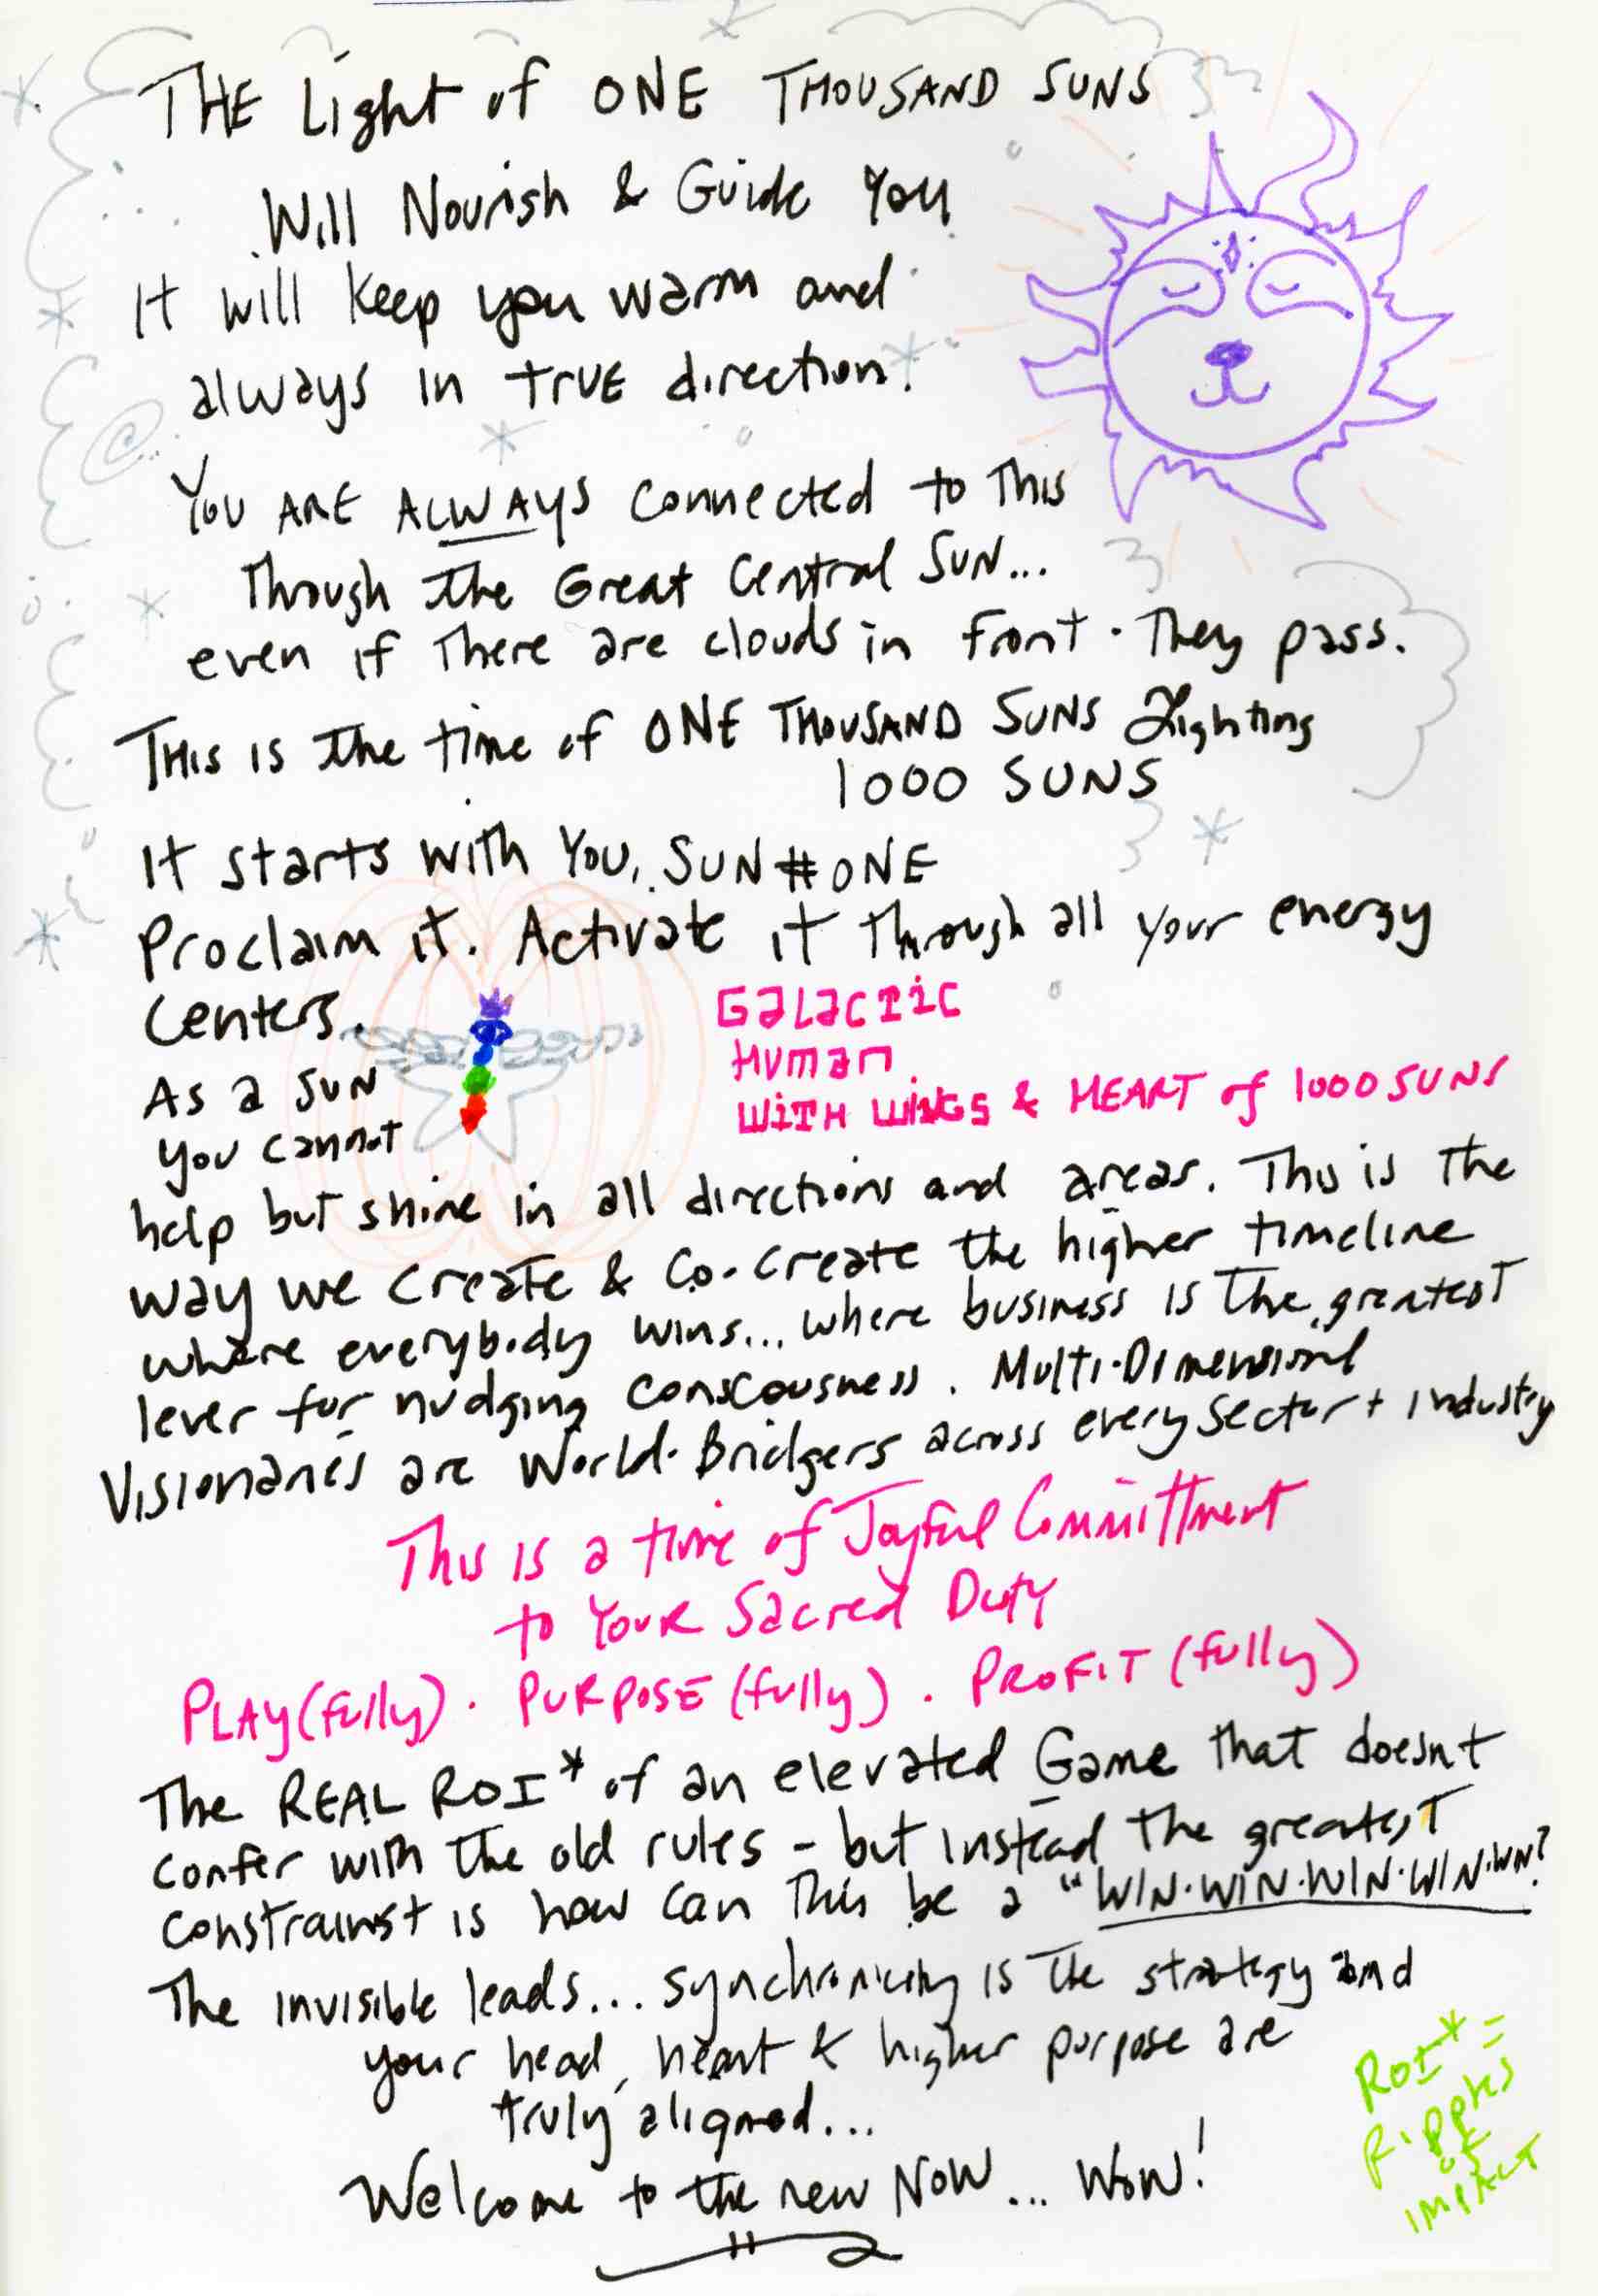 THE Light of ONE THOUSAND SUNS
Will Nourish & Guide You
It will keep you warm and
always in TRUE direction.
YOU ARE ALWAYS connected to This
Through the Great Central SUN...
even if There are clouds in front. They pass.
THIS IS the time of ONE THOUSAND SUNS Lighting
1000 SUNS
It starts with You, SUN #ONE
Proclaim it. Activate it Through all your energy
Centers.
GaLacTic
Human
WiTH WiNGS & HEART of 1000 SUNS
As a SUN
you cannot
help but shine in all directions and areas. This is The
way we create & Co-create the higher timeline
where everybody wins... where business is The greatest
lever for nudging conscousness. Multi-Dimensional
Visionaries are World-Bridgers across every Sector + Industry
This is a time of Joyful Committment
to Your Sacred Duty
PLAY(fully) . PURPOSE (fully) . PROFIT (fully)
The REAL ROI* of an elevated Game that doesnt
confer with The old rules - but instead The greatest
constrainst is how can This be a "WIN.WIN.WIN.WIN.WIN?
The invisible leads... synchronicity is The strategy and
your head, heart & higher purpose are
truly aligned...
Welcome to the new NOW... WOW!
ROI* =
Ripples
of
IMPACT